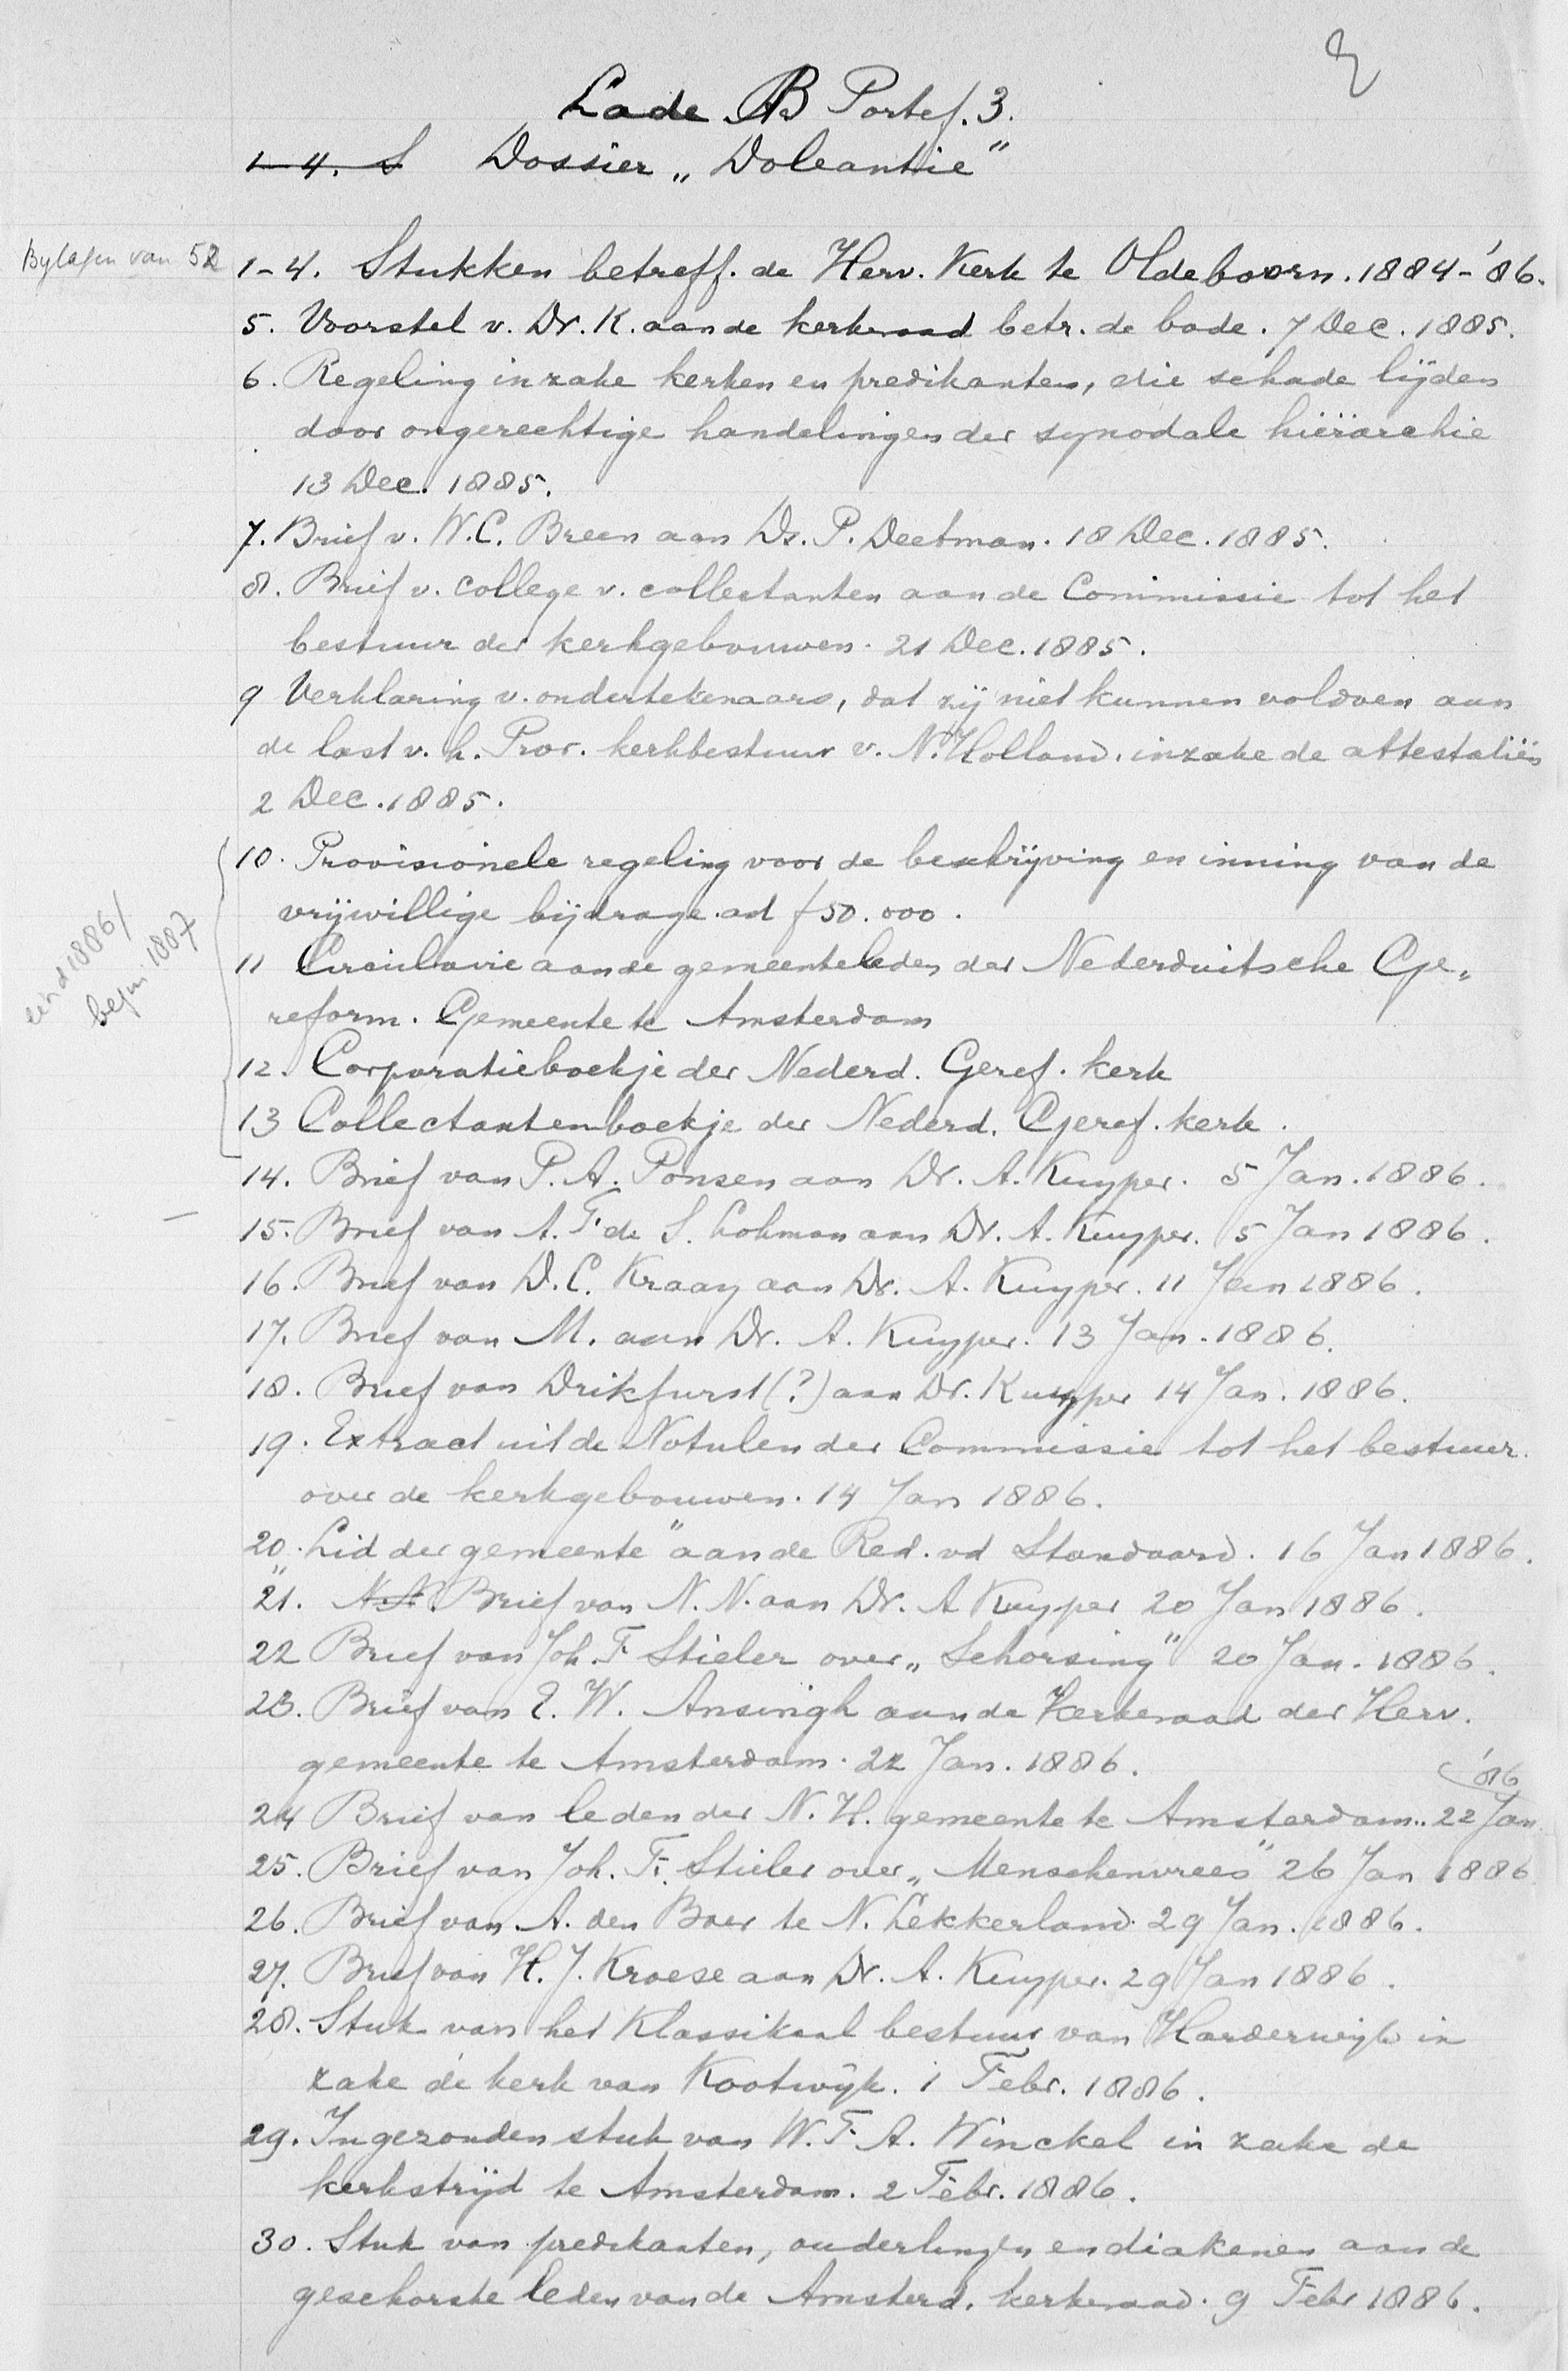 Lade B Portef. 3.
1-4. S Dossier „Doleantie"
Bylagen van 52
1-4. Stukken betreff. de Herv. Kerk te Oldeboorn. 1884-'86.
5. Voorstel v. Dr. K. aan de kerkeraad betr. de bode. 7 Dec. 1885.
6. Regeling inzake kerken en predikanten, die schade lijden
door ongerechtige handelingen der synodale hiërarchie
13 Dec. 1885.
7. Brief v. W.C. Breen aan Ds. P. Deetman. 18 Dec. 1885.
8. Brief v. college v. collectanten aan de Commissie tot het
bestuur der kerkgebouwen. 21 Dec. 1885.
9 Verklaring v. ondertekenaars, dat zij niet kunnen voldoen aan
de last v. h. Prov. kerkbestuur v. N. Holland. inzake de attestatiën
2 Dec. 1885.
eind 1886/
begin 1887
10. Provisionele regeling voor de beschrijving en inning van de
vrijwillige bijdrage ad f 50.000.
11 Circulaire aan de gemeenteleden der Nederduitsche Ge„
reform. Gemeente te Amsterdam
12. Corporatieboekje der Nederd. Geref. kerk
13 Collectantenboekje der Nederd. Geref. kerk.
14. Brief van P. A. Ponsen aan Dr. A. Kuyper. 5 Jan. 1886.
15. Brief van A. F. de S. Lohman aan Dr. A. Kuyper. 5 Jan 1886.
16. Brief van D. C. Kraay aan Dr. A. Kuyper. 11 Jan 1886.
17. Brief van M. aan Dr. A. Kuyper. 13 Jan. 1886.
18. Brief van Drikfurst(?) aan Dr. Kuyper 14 Jan. 1886.
19. Extract uit de Notulen der Commissie tot het bestuur.
over de kerkgebouwen. 14 Jan 1886.
20. „Lid der gemeente" aan de Red. vd Standaard. 16 Jan 1886.
21. N.N. Brief van N. N. aan Dr. A Kuyper 20 Jan 1886.
22 Brief van Joh. F. Stieler over „Schorsing" 20 Jan. 1886.
23. Brief van E. W. Ansingh aan de Kerkeraad der Herv.
gemeente te Amsterdam. 22 Jan. 1886.
24 Brief van leden der N. H. gemeente te Amsterdam. 22 Jan. '86
25. Brief van Joh. F. Stieler over „Menschenvrees" 26 Jan 1886
26. Brief van A. den Boer te N. Lekkerland. 29 Jan. 1886.
27. Brief van H. J. Kroese aan Dr. A. Kuyper. 29 Jan 1886.
28. Stuk van het Klassikaal bestuur van Harderwijk in
zake de kerk van Kootwijk. 1 Febr. 1886.
29. Ingezonden stuk van W. F. A. Winckel in zake de
kerkstrijd te Amsterdam. 2 Febr. 1886.
30. Stuk van predikanten, ouderlingen en diakenen aan de
geschorste leden van de Amsterd. kerkeraad. 9 Febr 1886.